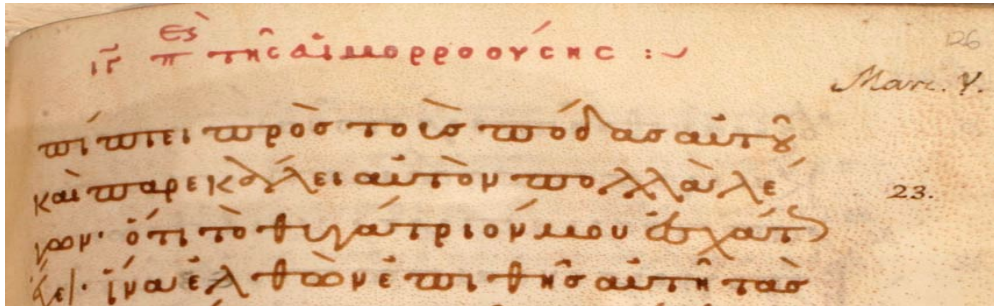 126
ιγ περὶ τῆς αἱμορροούσης :
Marc. V.
πίπτει πρὸσ τοὺσ πόδασ αὐτοῦ
καὶ παρεκάλει αὐτὸν πολλὰ λέ
23.
γων· ὅτι τὸ θυγάτριόν μου ἐσχάτωσ
ἔχει· ἵνα ἐλθὼν ἐπιθῆσ αὐτῆ τὰσ